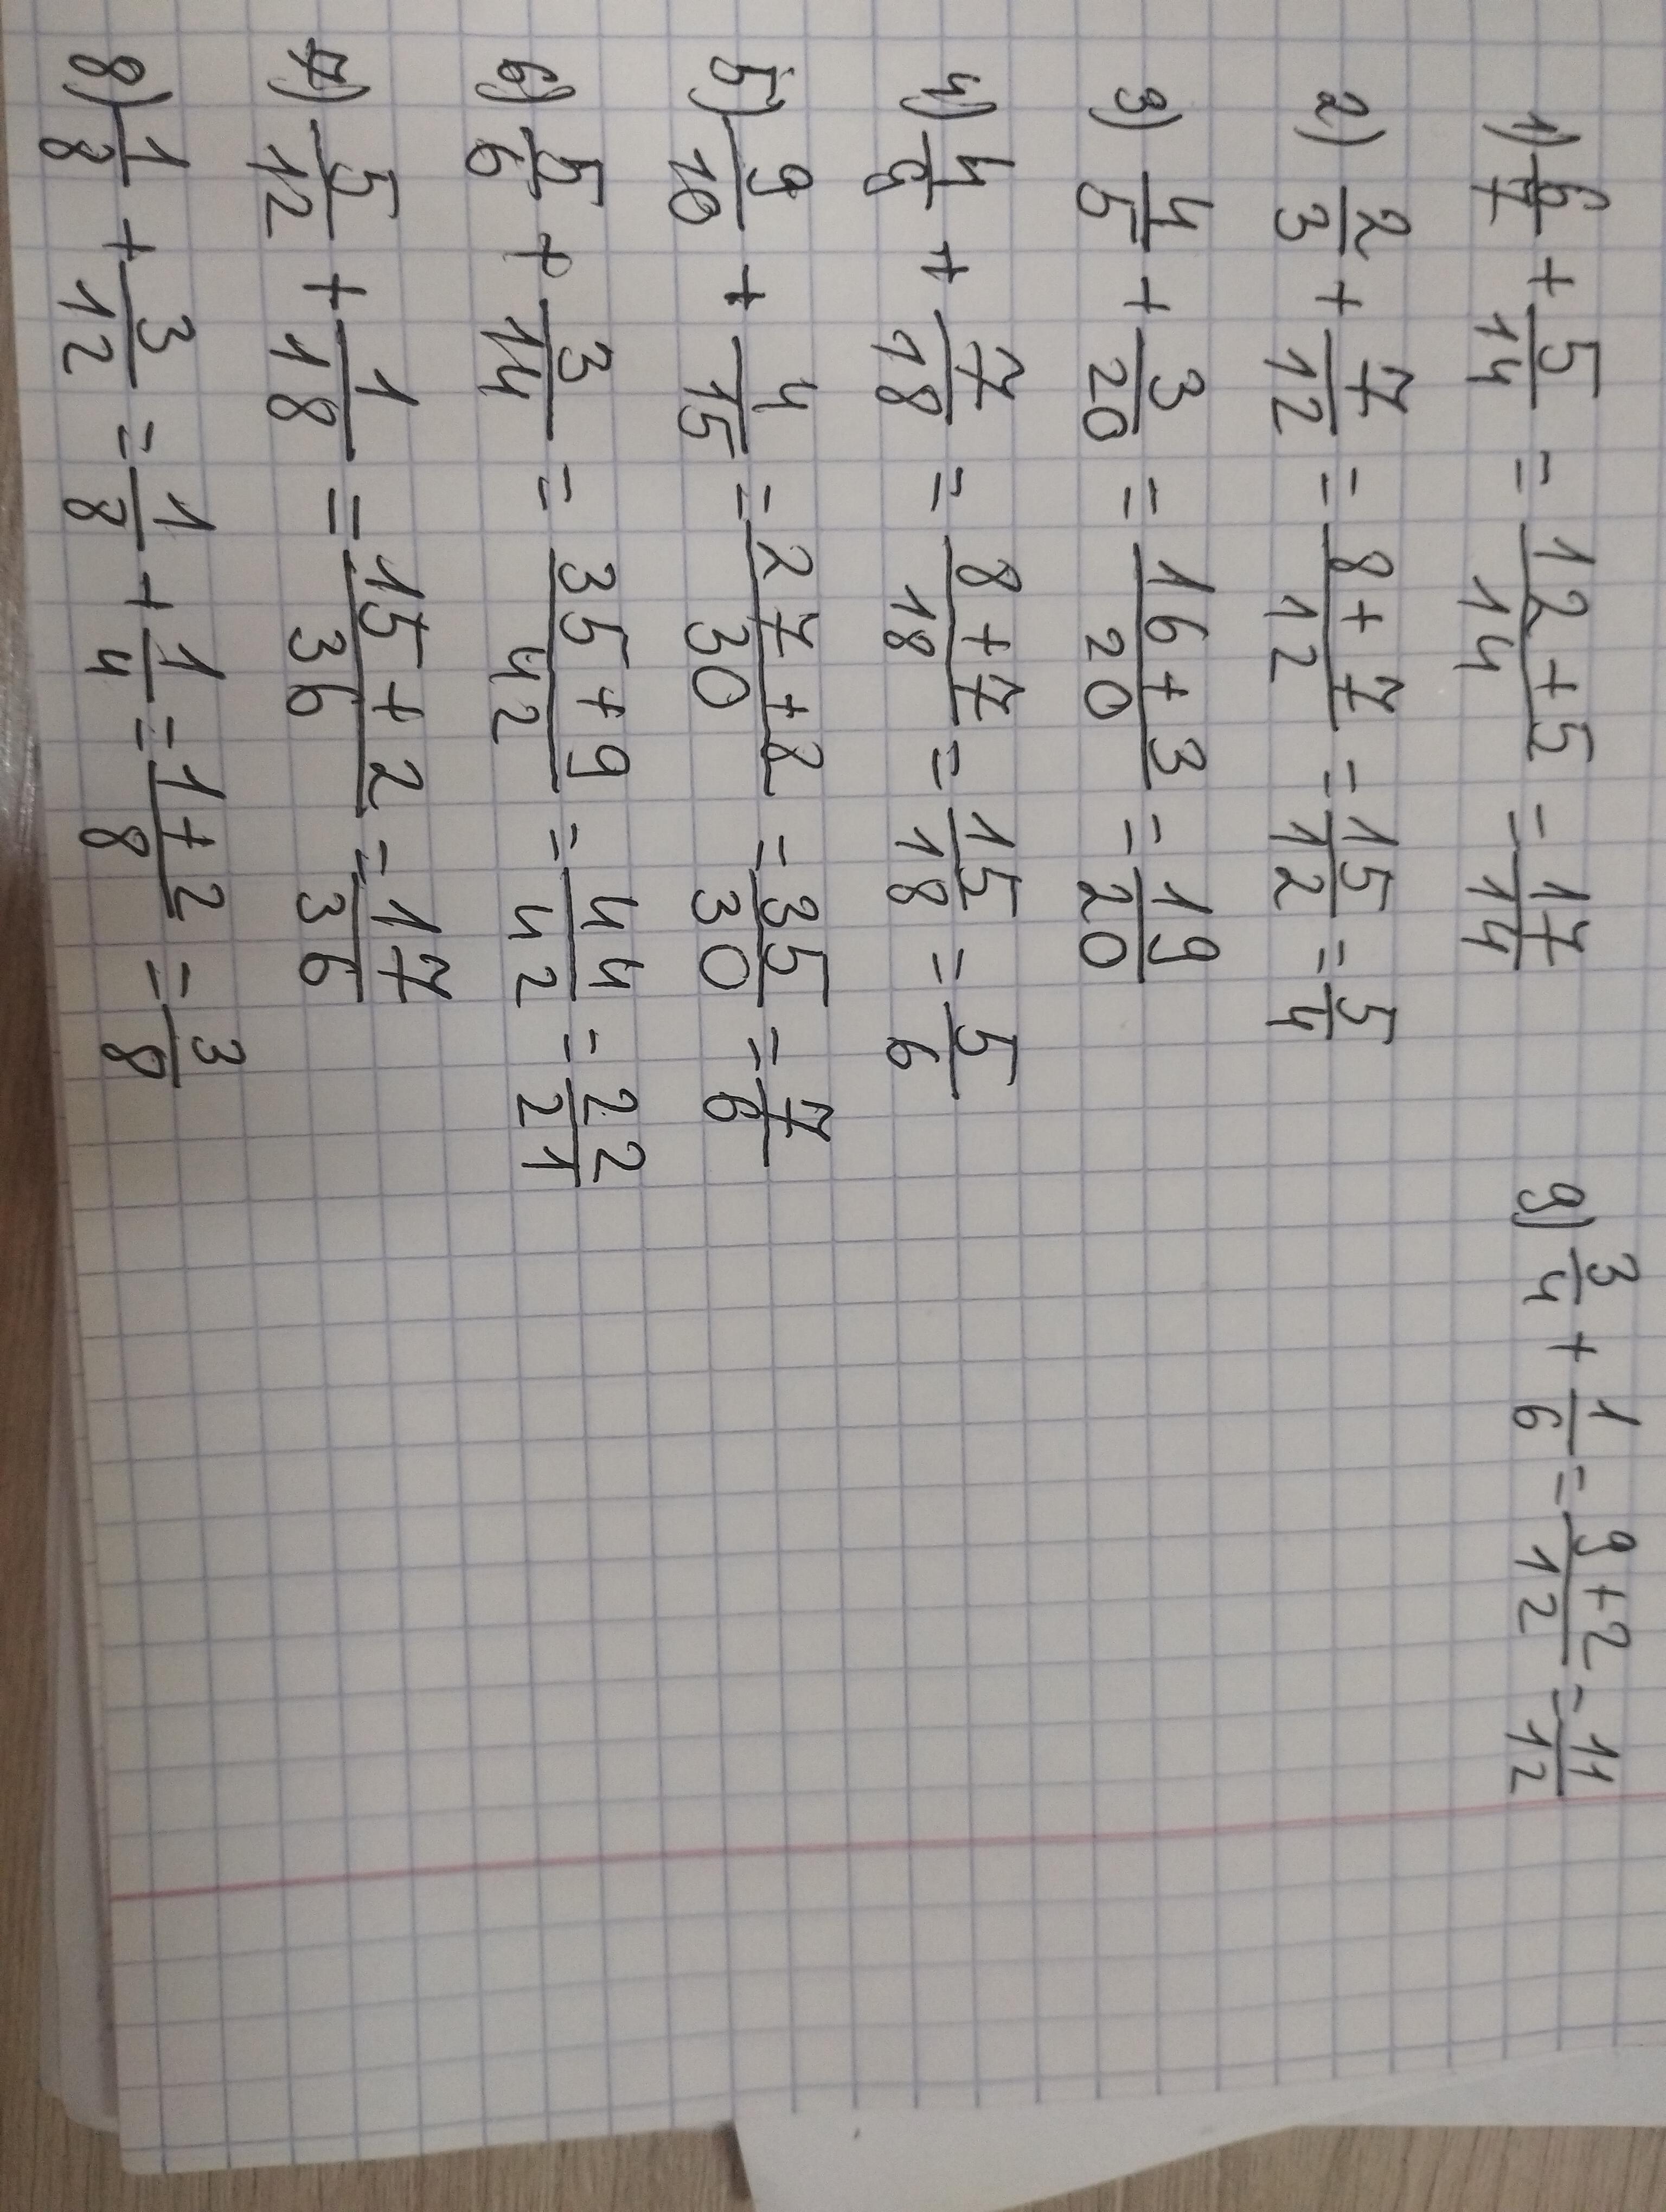 1) 6/7 + 5/14 = 12+5/14 = 17/14
2) 2/3 + 7/12 = 8+7/12 = 15/12 = 5/4
3) 4/5 + 3/20 = 16+3/20 = 19/20
4) 4/9 + 7/18 = 8+7/18 = 15/18 = 5/6
5) 9/10 + 4/15 = 27+8/30 = 35/30 = 7/6
6) 5/6 + 3/14 = 35+9/42 = 44/42 = 22/21
7) 5/12 + 1/18 = 15+2/36 = 17/36
8) 1/8 + 3/12 = 1/8 + 1/4 = 1+2/8 = 3/8
9) 3/4 + 1/6 = 9+2/12 = 11/12